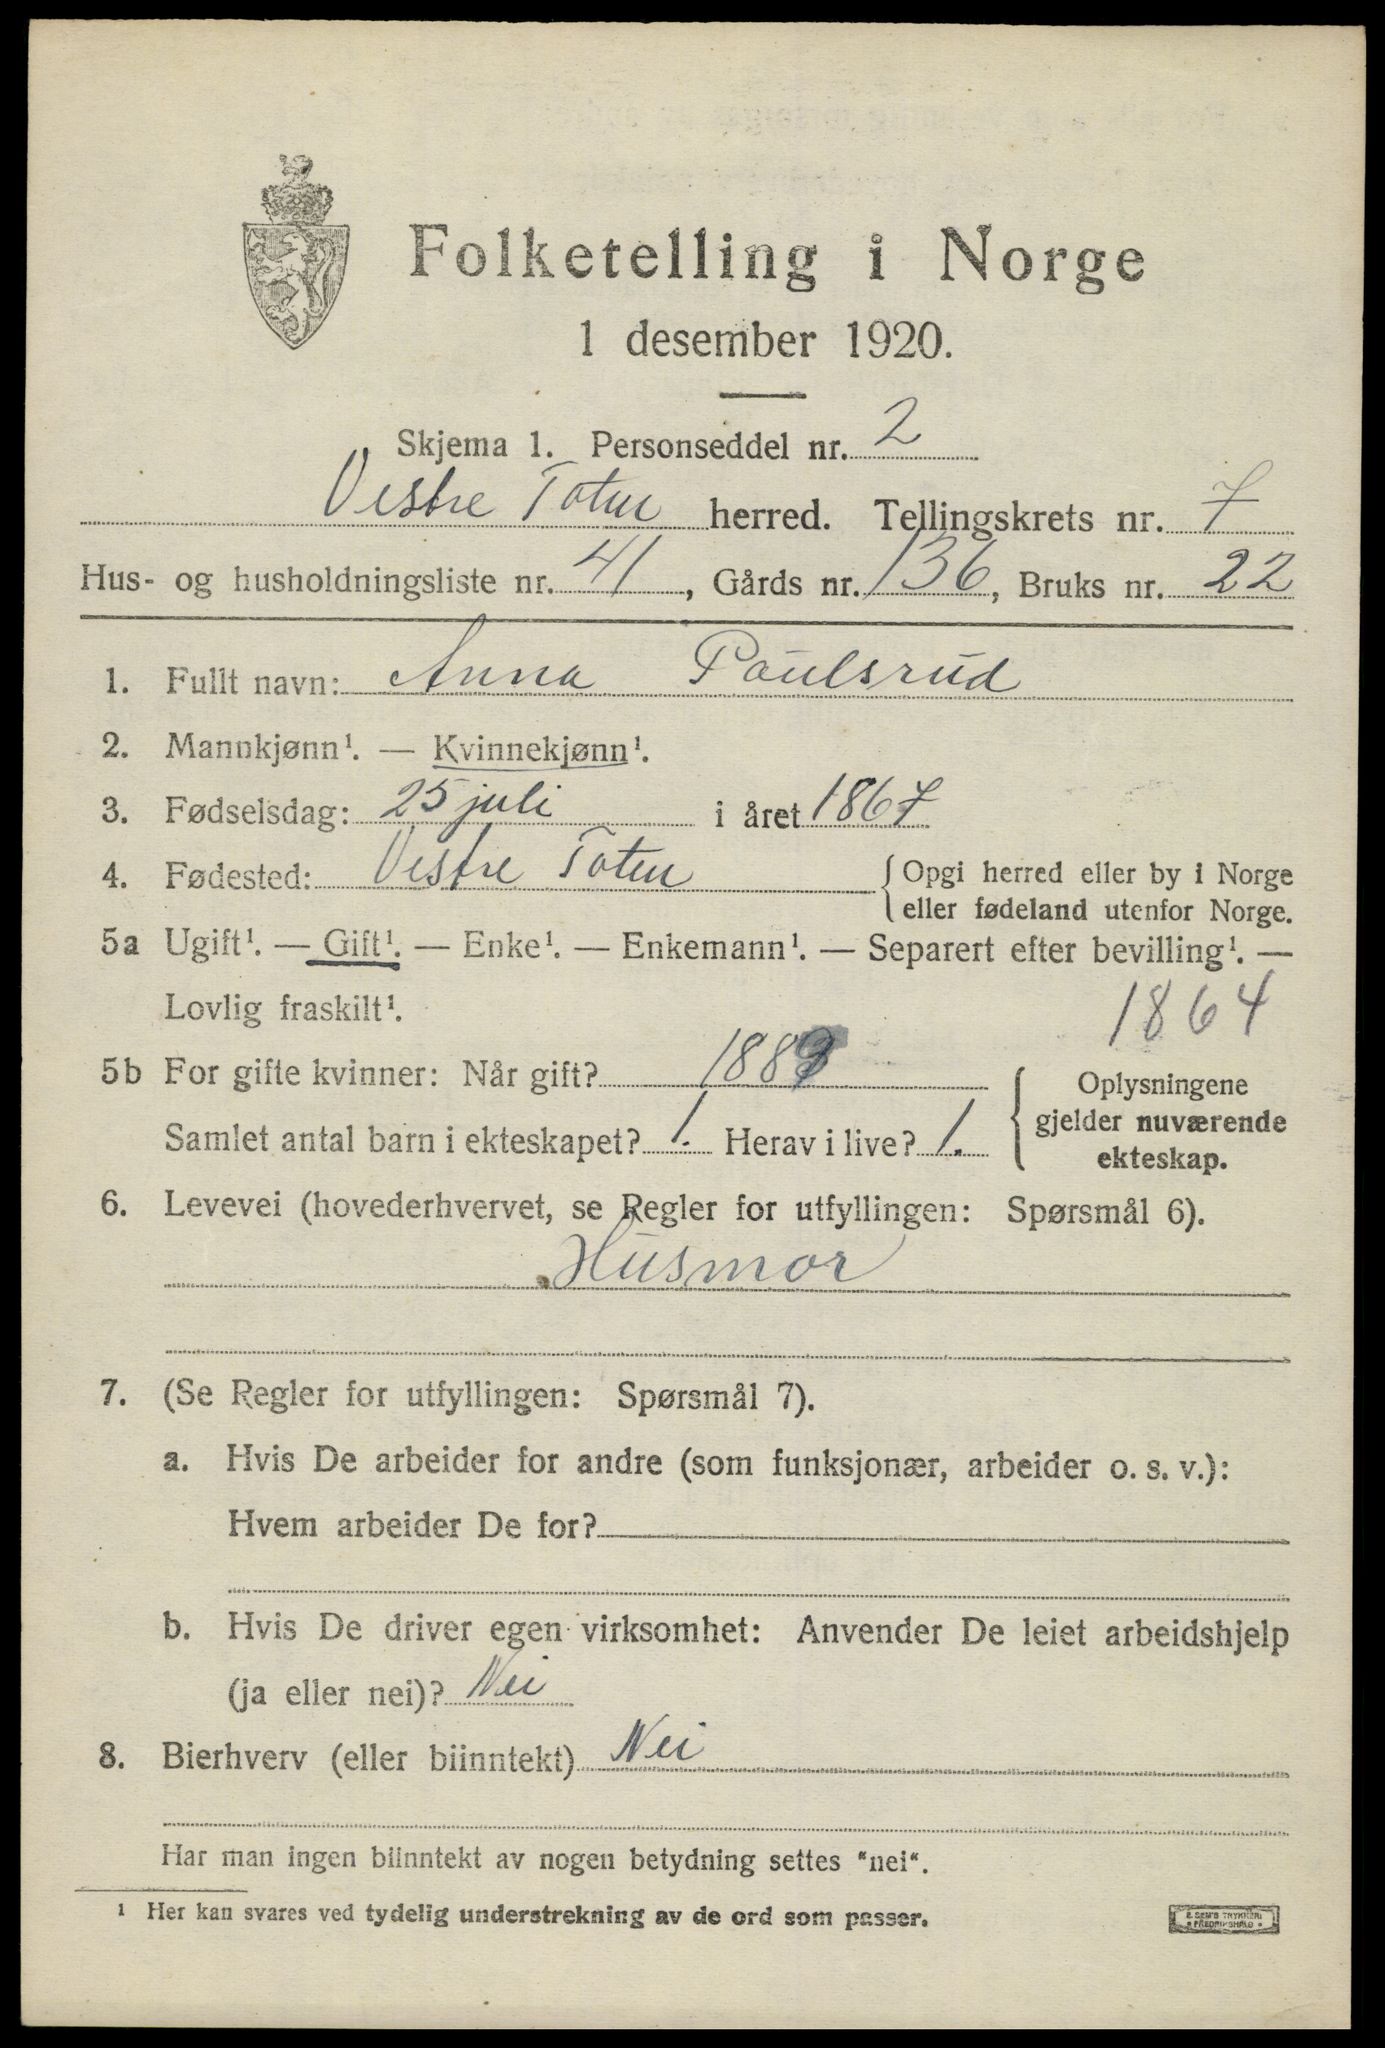 Folketelling i Norge
1 desember 1920.
Skjema 1. Personseddel nr. 2
Vestre Toten herred. Tellingskrets nr. 7
Hus- og husholdningsliste nr. 41, Gårds nr. 136, Bruks nr. 22
1. Fullt navn: Anna Paulsrud
2. Mannkjønn¹. — Kvinnekjønn¹.
3. Fødselsdag: 25 juli i året 1867
4. Fødested: Vestre Toten { Opgi herred eller by i Norge
eller fødeland utenfor Norge.
5a Ugift¹. — Gift¹. — Enke¹. — Enkemann¹. — Separert efter bevilling¹. —
Lovlig fraskilt¹.
1864
5b For gifte kvinner: Når gift? 188
Samlet antal barn i ekteskapet? 1. Herav i live? 1.
{ Oplysningene
gjelder nuværende
ekteskap.
6. Levevei (hovederhvervet, se Regler for utfyllingen: Spørsmål 6).
Husmor
7. (Se Regler for utfyllingen: Spørsmål 7).
a. Hvis De arbeider for andre (som funksjonær, arbeider o. s. v.):
Hvem arbeider De for?
b. Hvis De driver egen virksomhet: Anvender De leiet arbeidshjelp
(ja eller nei)? Nei
8. Bierhverv (eller biinntekt) Nei
Har man ingen biinntekt av nogen betydning settes "nei".
¹ Her kan svares ved tydelig understrekning av de ord som passer.
E. SEM'S TRYKKERI
FREDRIKSHALD